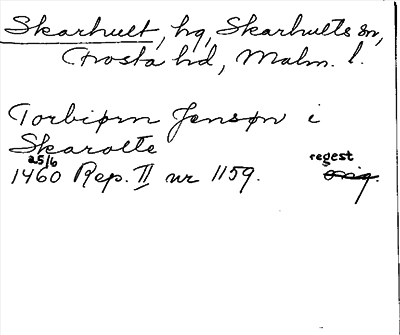 Skarhult, hg, Skarhults sn,
Frosta hd, Malm. l.
Torbiørn Jensøn i
Skarolte
25/6
1460 Rep. II nr 1159. regest
orig.